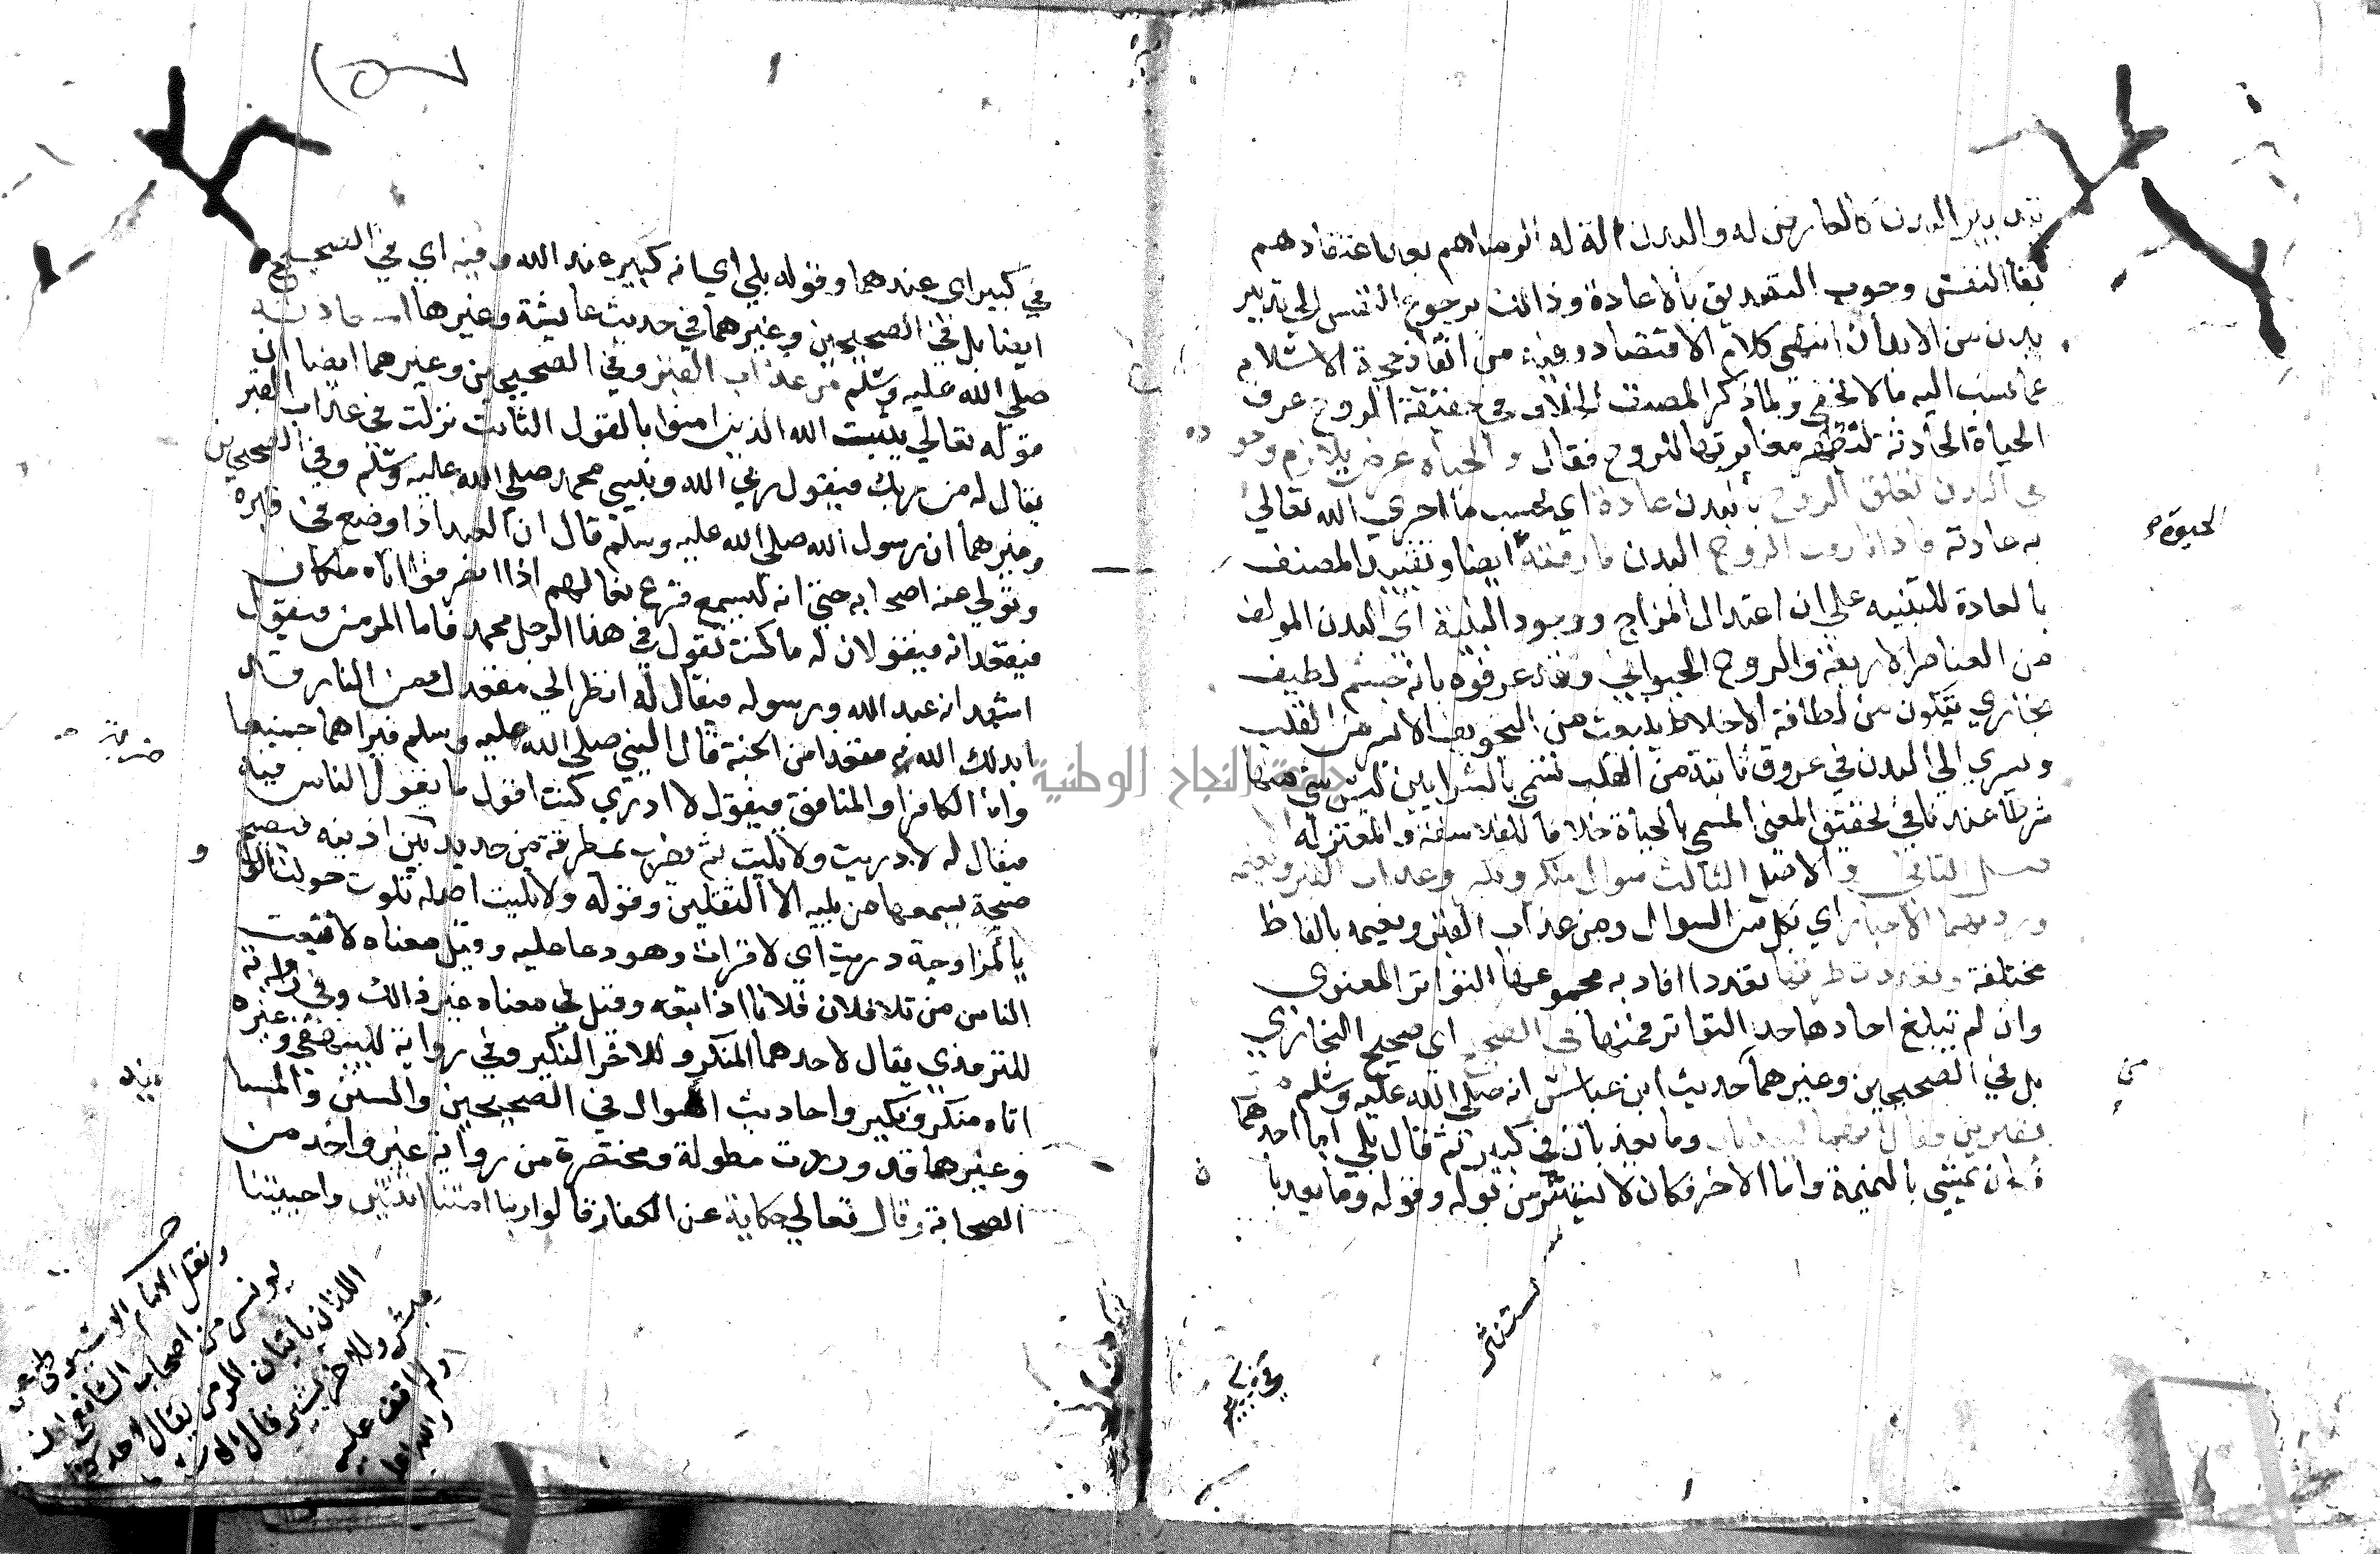 بقا النفس وجوب التصديق بالاعادة وذالك برجوع النفس الي تدبير
بدن من الابدان انتهى كلام الاقتصاد وفيه من انقاذ حجة الاسلام
عما نسب اليه ما لا يخفى ولما ذكر المصنف الخلاف في حقيقة الروح عرف
الحياة الحادثة لتظهر مغايرتها للروح فقال والحياة عرض يلازم وجوده
في البدن تعلق الروح بالبدن عادة اي بحسب ما اجري الله تعالي
به عادته فاذا فارقت الروح البدن فارقته ايضا وتقييد المصنف
بالعادة للتنبيه علي ان اعتدال المزاج ووجود البنية اي البدن المولف
من العناصر الاربعة والروح الحيواني وقد عرفوه بانه جسم لطيف
بخاري يتكون من لطافة الاخلاط ينبعث من التجويف الايسر من القلب
ويسري الي البدن في عروق نابتة من القلب تسمي بالشرايين ليس شي منها
شرطا عندنا في تحقيق المعنى المسمي بالحياة خلافا للفلاسفة والمعتزلة
والاصل الثالث سوال منكر ونكير وعذاب القبر ونعيمه
ورد بهما الاخبار اي بكل من السوال ومن عذاب القبر ونعيمه بالفاظ
مختلفة وتعددت طرقها تعددا افاد به مجموعها التواتر المعنوى
وان لم تبلغ احادها حد التواتر فمنها في الصحيح اي صحيح البخاري
بل في الصحيحين وغيرهما حديث ابن عباس انه صلي الله عليه وسلم
بقبرين فقال انهما ليعذبان وما يعذبان في كبير ثم قال بلي اما احدهما
فكان يمشي بالنميمة واما الاخر فكان لا يستتر من بوله وقوله وما يعذبا
الحيوة
من
تستنثر
في كبير اي عندهما وقوله بلي اي انه كبير عند الله وفيه اي في الصحيح
ايضا بل في الصحيحين وغيرهما في حديث عايشة وغيرها استعاذته
صلي الله عليه وسلم من عذاب القبر وفي الصحيحين وغيرهما ايضا ان
قوله تعالي يثبت الله الذين امنوا بالقول الثابت نزلت في عذاب القبر
يقال له من ربك فيقول ربي الله ونبيي محمد صلي الله عليه وسلم وفي الصحيحين
وغيرهما ان رسول الله صلي الله عليه وسلم قال ان العبد اذا وضع في قبره
وتولي عنه اصحابه حتى انه ليسمع قرع نعالهم اذا انصرفوا اتاه ملكان
فيقعدانه فيقولان له ما كنت تقول في هذا الرجل محمد فاما المومن فيقول
اشهد انه عبد الله ورسوله فيقال له انظر الي مقعدك من النار قد
ابدلك الله به مقعدا من الجنة قال النبي صلي الله عليه وسلم فيراهما جميعا
واما الكافر او المنافق فيقول لا ادري كنت اقول ما يقول الناس فيه
فيقال له لا دريت ولا تليت ثم يضرب بمطرقة من حديد بين اذنيه فيصيح
صيحة يسمعها من يليه الا الثقلين وقوله ولا تليت اصله تلوت حولت الواو
يا لمزاوجة دريت اي لا قرات وهو دعا عليه وقيل معناه لا تبعت
الناس من تلا فلان فلانا اذا تبعه وقيل في معناه غير ذالك وفي رواية
للترمذي يقال لاحدهما المنكر وللاخر النكير وفي رواية للبيهقي وغيره
اتاه منكر ونكير واحاديث السوال في الصحيحين والسنن والمسا
نيد
وغيرها قد وردت مطولة ومختصرة من رواية غير واحد من
الصحابة وقال تعالي حكاية عن الكفار قالوا ربنا امتنا اثنتين واحييتنا
ونقل الامام السيوطي عن
يونس من اصحاب الشافعي ان
اللذان ياتيان المومن يقال لاحدهما
مبشر وللاخر بشير قال
ولم اقف عليه
والله اعلم
جامعة النجاح الوطنية